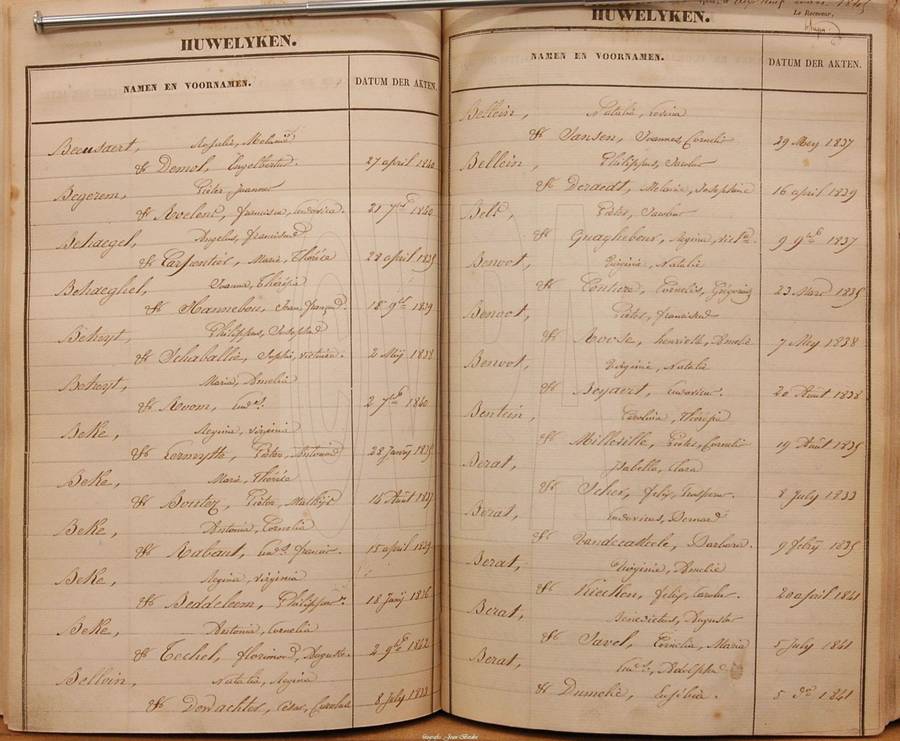 HUWELYKEN.
NAMEN EN VOORNAMEN.
DATUM DER AKTEN.
Beeusaert, Rosalie, Melanie
& Demol, Engelbertus. 27 april 1840
Begerem, Pieter, Joannes
& Roelens, Francisca, Ludovica. 21 7bre 1840
Behaegel, Angelus, Franciscus
& Carpentier, Marie, Thérèse 28 april 1835
Behaeghel, Joanna, Thérésia
& Hannebou, Jean, François 18 9bre 1839
Beheyt, Philippus, Josephus
& Schaballie, Sophie, Victoria. 2 Mey 1838
Beheyt, Maria, Amelia
& Room, Lud. 2 7bre 1840
Beke, Regina, Virginia
& Vermyth, Pieter, Antonius 28 Janry 1835
Beke, Marie, Thérèse
& Boutez, Pieter, Mathys 16 Août 1837
Beke, Antonia, Cornelia
& Rabaut, Lud. Francis. 15 april 1839
Beke, Regina, Virginia
& Beddeleem, Philippus. 18 Juny 1836
Beke, Antonia, Cornelia
& Techel, Florimond, Auguste. 2 9bre 1842
Bellein, Natalie, Regina
& Dewachter, Cesar, Carolus 8 July 1838
Le Receveur,
HUWELYKEN.
NAMEN EN VOORNAMEN.
DATUM DER AKTEN.
Bellein, Natalie, Rosina
& Jansen, Joannes, Cornelis 29 Mey 1837
Bellein, Philippus, Jacobus
& Deraedt, Melanie, Josephine 16 april 1839
Belt, Pieter, Jacobus
& Quaghebeur, Regina, Vict. 9 9bre 1837
Benoot, Virginie, Natalie
& Couture, Cornelis, Grégorius 23 Mars 1835
Benoot, Pieter, Franciscus
& Roose, henriette, Amelie 7 Mey 1838
Benoot, Virginie, Natalie
& Beyaert, Ludovicus. 20 Août 1838
Bentein, Carolina, Thérésia
& Milleville, Pieter, Cornelis 19 Août 1835
Berat, Isabella, Clara
& Scher, Felix, 8 July 1833
Berat, Ludovicus, Bernard
& Vandecasteele, Barbara. 9 febry 1835
Berat, Virginie, Amelie
& Kiecken, Felix, Carolus. 20 april 1841
Berat, Benedictus, Augustus
& Javel, Cornelia, Maria 5 July 1841
Berat, Lud. Adolphus
& Dumelie, Eusébie. 5 do 1841